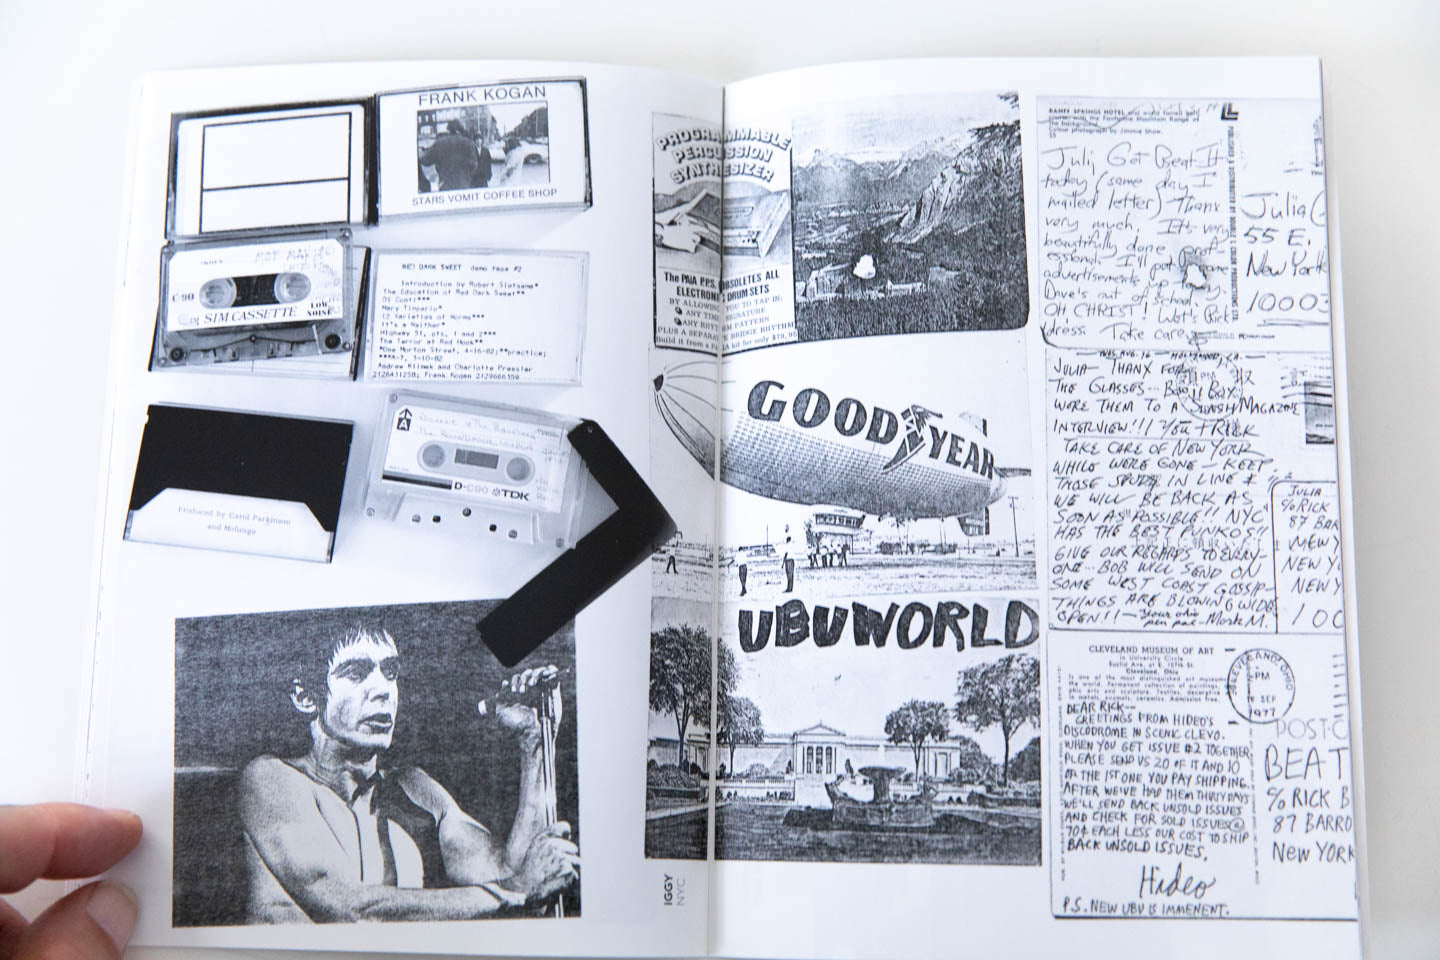 FRANK KOGAN
STARS VOMIT COFFEE SHOP
C-90
SIM CASSETTE
LOW NOISE
RED DARK SWEET demo tape #2
Introduction by Robert Sietsema*
The Education of Red Dark Sweet**
Di Conti***
Mary Timparlo*
12 Varieties of Worms***
It's a Neither*
Highway 51, pts. 1 and 2***
The Terror at Red Hook**
*One Morton Street, 4-16-82;**practice;
***A-7, 3-10-82
Andrew Klimek and Charlotte Pressler
2128431258; Frank Kogan 2129666359
Produced by Carol Parkinson
and Mofungo
A
D-C90 TDK
IGGY
NYC
PROGRAMMABLE
PERCUSSION
SYNTHESIZER
The PAiA P.P.S. OBSOLETES ALL
ELECTRONIC DRUM SETS
BY ALLOWING YOU TO TAP IN:
ANY TIME SIGNATURE
ANY RHYTHM PATTERN
PLUS A SEPARATE BRIDGE RHYTHM
Build it from a PAiA kit for only $79.95
GOODYEAR
UBUWORLD
BANFF SPRINGS HOTEL and world famed golf
course, with the Fairholme Mountain Range in
the background.
Colour photograph by Jimmie Shaw.
Juli, Got Beat It
today (same day I
mailed letter) Thanx
very much, It's very
beautifully done, prof
essional. I'll put some
advertisements up today.
Dave's out of school
OH CHRIST! Wot's Park
dress. Take care
Julia
55 E.
New York
10003
TUES. AUG. 16 - HOLLYWOOD, CA.
JULIA - THANX FOR
THE GLASSES... BOOJI BOY
WORE THEM TO A SLASH MAGAZINE
INTERVIEW!!! YOU TRICK
TAKE CARE OF NEW YORK
WHILE WE'RE GONE - KEEP
THOSE SPUDS IN LINE &
WE WILL BE BACK AS
SOON AS "POSSIBLE!! NYC"
HAS THE BEST PINKOS!!
GIVE OUR REGARDS TO EVERY-
ONE... BOB WILL SEND ON
SOME WEST COAST GOSSIP -
THINGS ARE BLOWING WIDE
OPEN!! - Your ohio
pen pal - Mark M.
JULIA
% RICK
87 BAR
NEW Y
NEW Y
NEW Y
100
CLEVELAND MUSEUM OF ART
in University Circle
Euclid Ave. at E. 107th St.
Cleveland, Ohio
Is one of the most distinguished art museums
the world. Permanent collection of paintings,
phic arts and sculpture. Textiles, decorative
in metals, enamels, ceramics. Admission free.
CLEVELAND, OHIO
PM
SEP
1977
DEAR RICK—
GREETINGS FROM HIDEO'S
DISCODROME IN SCENIC CLEVO.
WHEN YOU GET ISSUE #2 TOGETHER
PLEASE SEND US 20 OF IT AND 10
OF THE 1ST ONE. YOU PAY SHIPPING.
AFTER WE'VE HAD THEM THIRTY DAYS
WE'LL SEND BACK UNSOLD ISSUES
AND CHECK FOR SOLD ISSUES @
70¢ EACH LESS OUR COST TO SHIP
BACK UNSOLD ISSUES.
Hideo
P.S. NEW UBU IS IMMENENT.
POST-C
BEAT
% RICK B
87 BARRO
NEW YORK